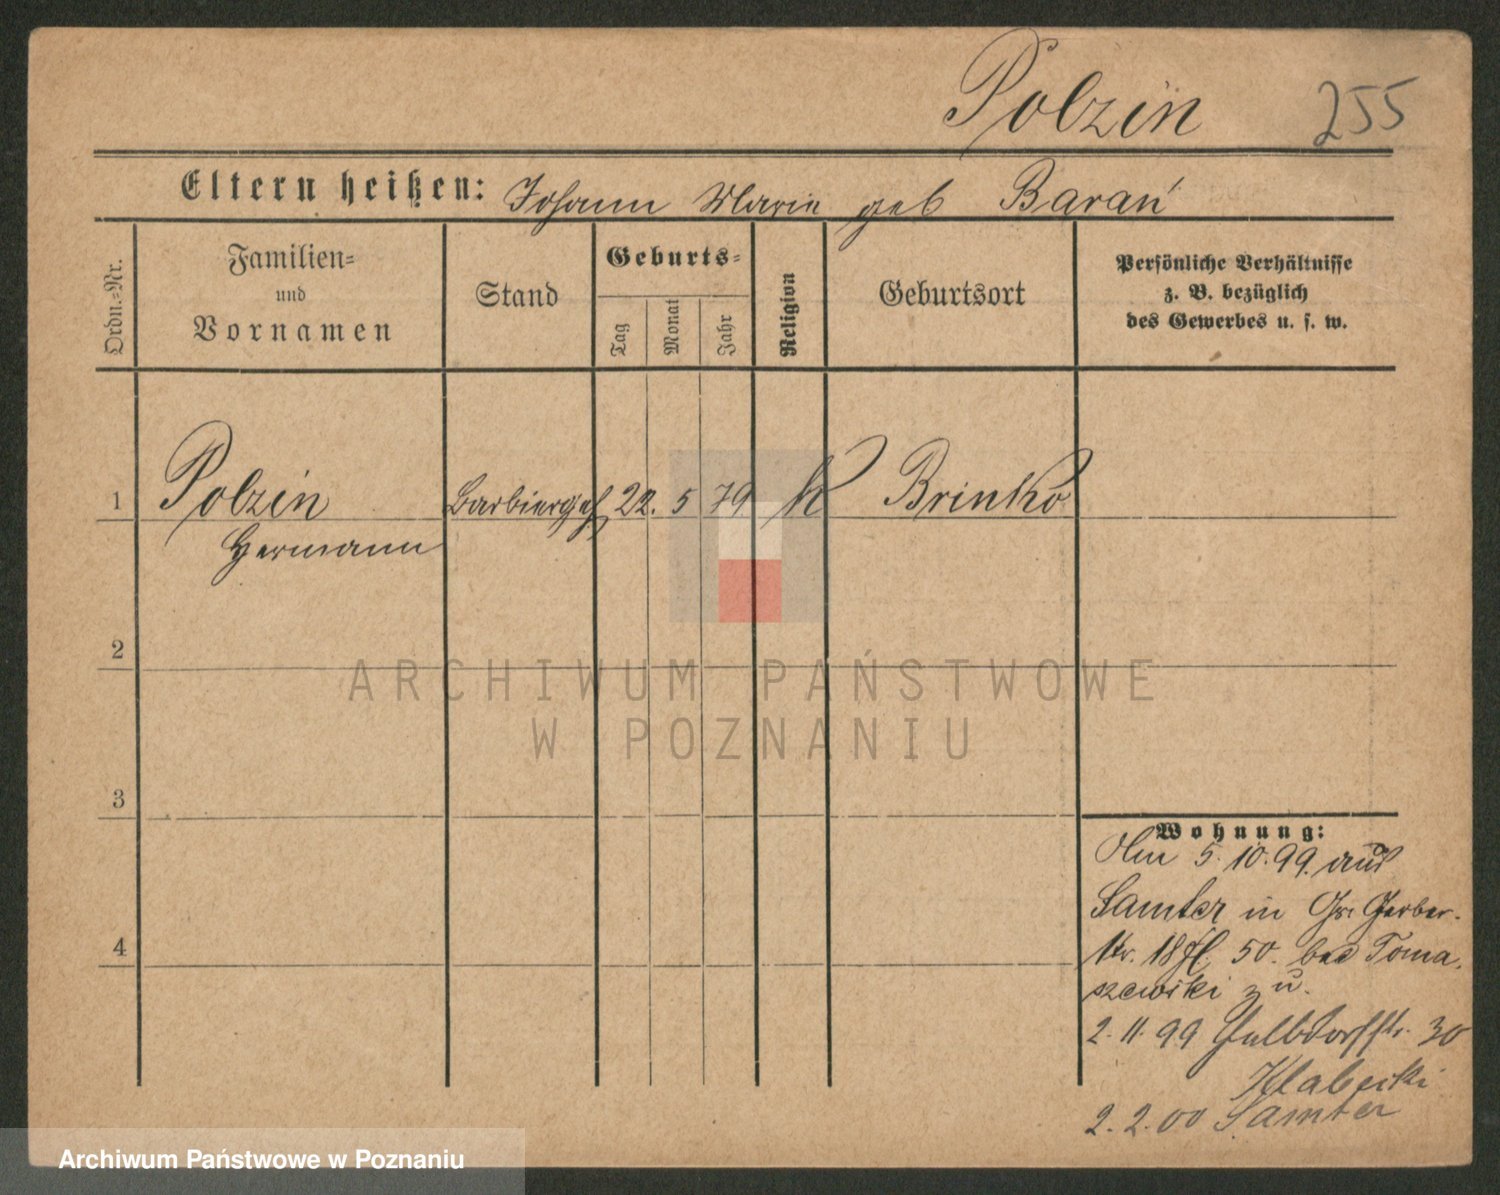 Polzin 255
Eltern heißen: Johann Marie geb Barań
Ordn.-Nr.
Familien- und Vornamen
Stand
Geburts-
Tag Monat Jahr
Religion
Geburtsort
Persönliche Verhältnisse
z. B. bezüglich
des Gewerbes u. s. w.
1 Polzin Barbiergeh 22. 5 79 k Brinko
Hermann
2
ARCHIWUM PAŃSTWOWE
W POZNANIU
3
Wohnung:
Am 5. 10. 99. aus
Samter in Gr. Gerber-
str. 18 50. bei Toma-
szewski z u.
2. 11. 99 Halbdorfstr. 30
2. 2. 00 Samter
4
Archiwum Państwowe w Poznaniu